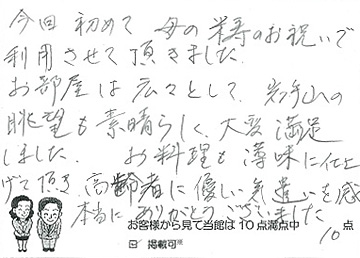 今回 初めて 母の米寿のお祝いで
利用させて頂きました.
お部屋は広々として、岩手山の
眺望も素晴らしく、大変満足
しました. お料理も薄味に仕上
げて頂き、高齢者に優しい気遣いを感
本当に ありがとうございました
お客様から見て当館は 10 点満点中 10 点
☑ 掲載可